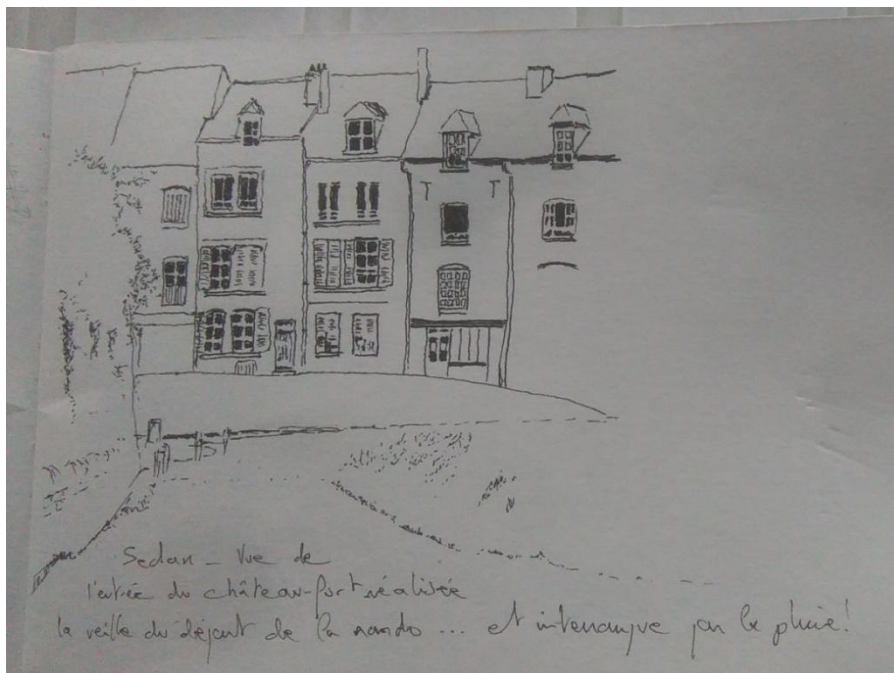 Sedan - Vue de
l'entrée du château-fort réalisée
la veille du départ de la rando ... et interrompue par la pluie!